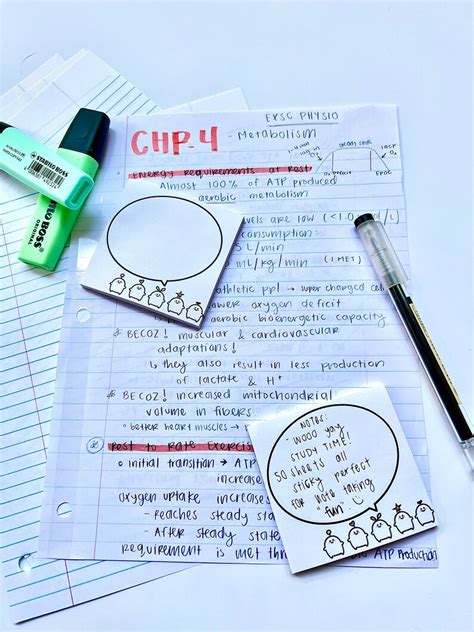 EXSC PHYSIO
CHP. 4 - Metabolism
Energy requirements at Rest
Almost 100% of ATP produced
aerobic metabolism
steady state
O₂ deficit
EPOC
STABILO BOSS
ORIGINAL
STABILO BOSS
levels are low (<1.0 /L)
consumption:
5 L/min
mL/kg/min (1 MET)
athletic ppl → super charged
lower oxygen deficit
aerobic bioenergetic capacity
BECOZ! muscular & cardiovascular
adaptations!
↳ they also result in less production
of lactate & H⁺
BECOZ! increased mitochondrial
volume in fibers
• better heart muscles →
Rest to Rate Exercis
• initial transition → ATP
increase
oxygen uptake increases
- reaches steady stat
- After steady state
requirement is met thr
ATP Production
NOTES:
- WOOO yay
STUDY TIME!
50 sheets all
sticky perfect
for note taking
"fun" :)